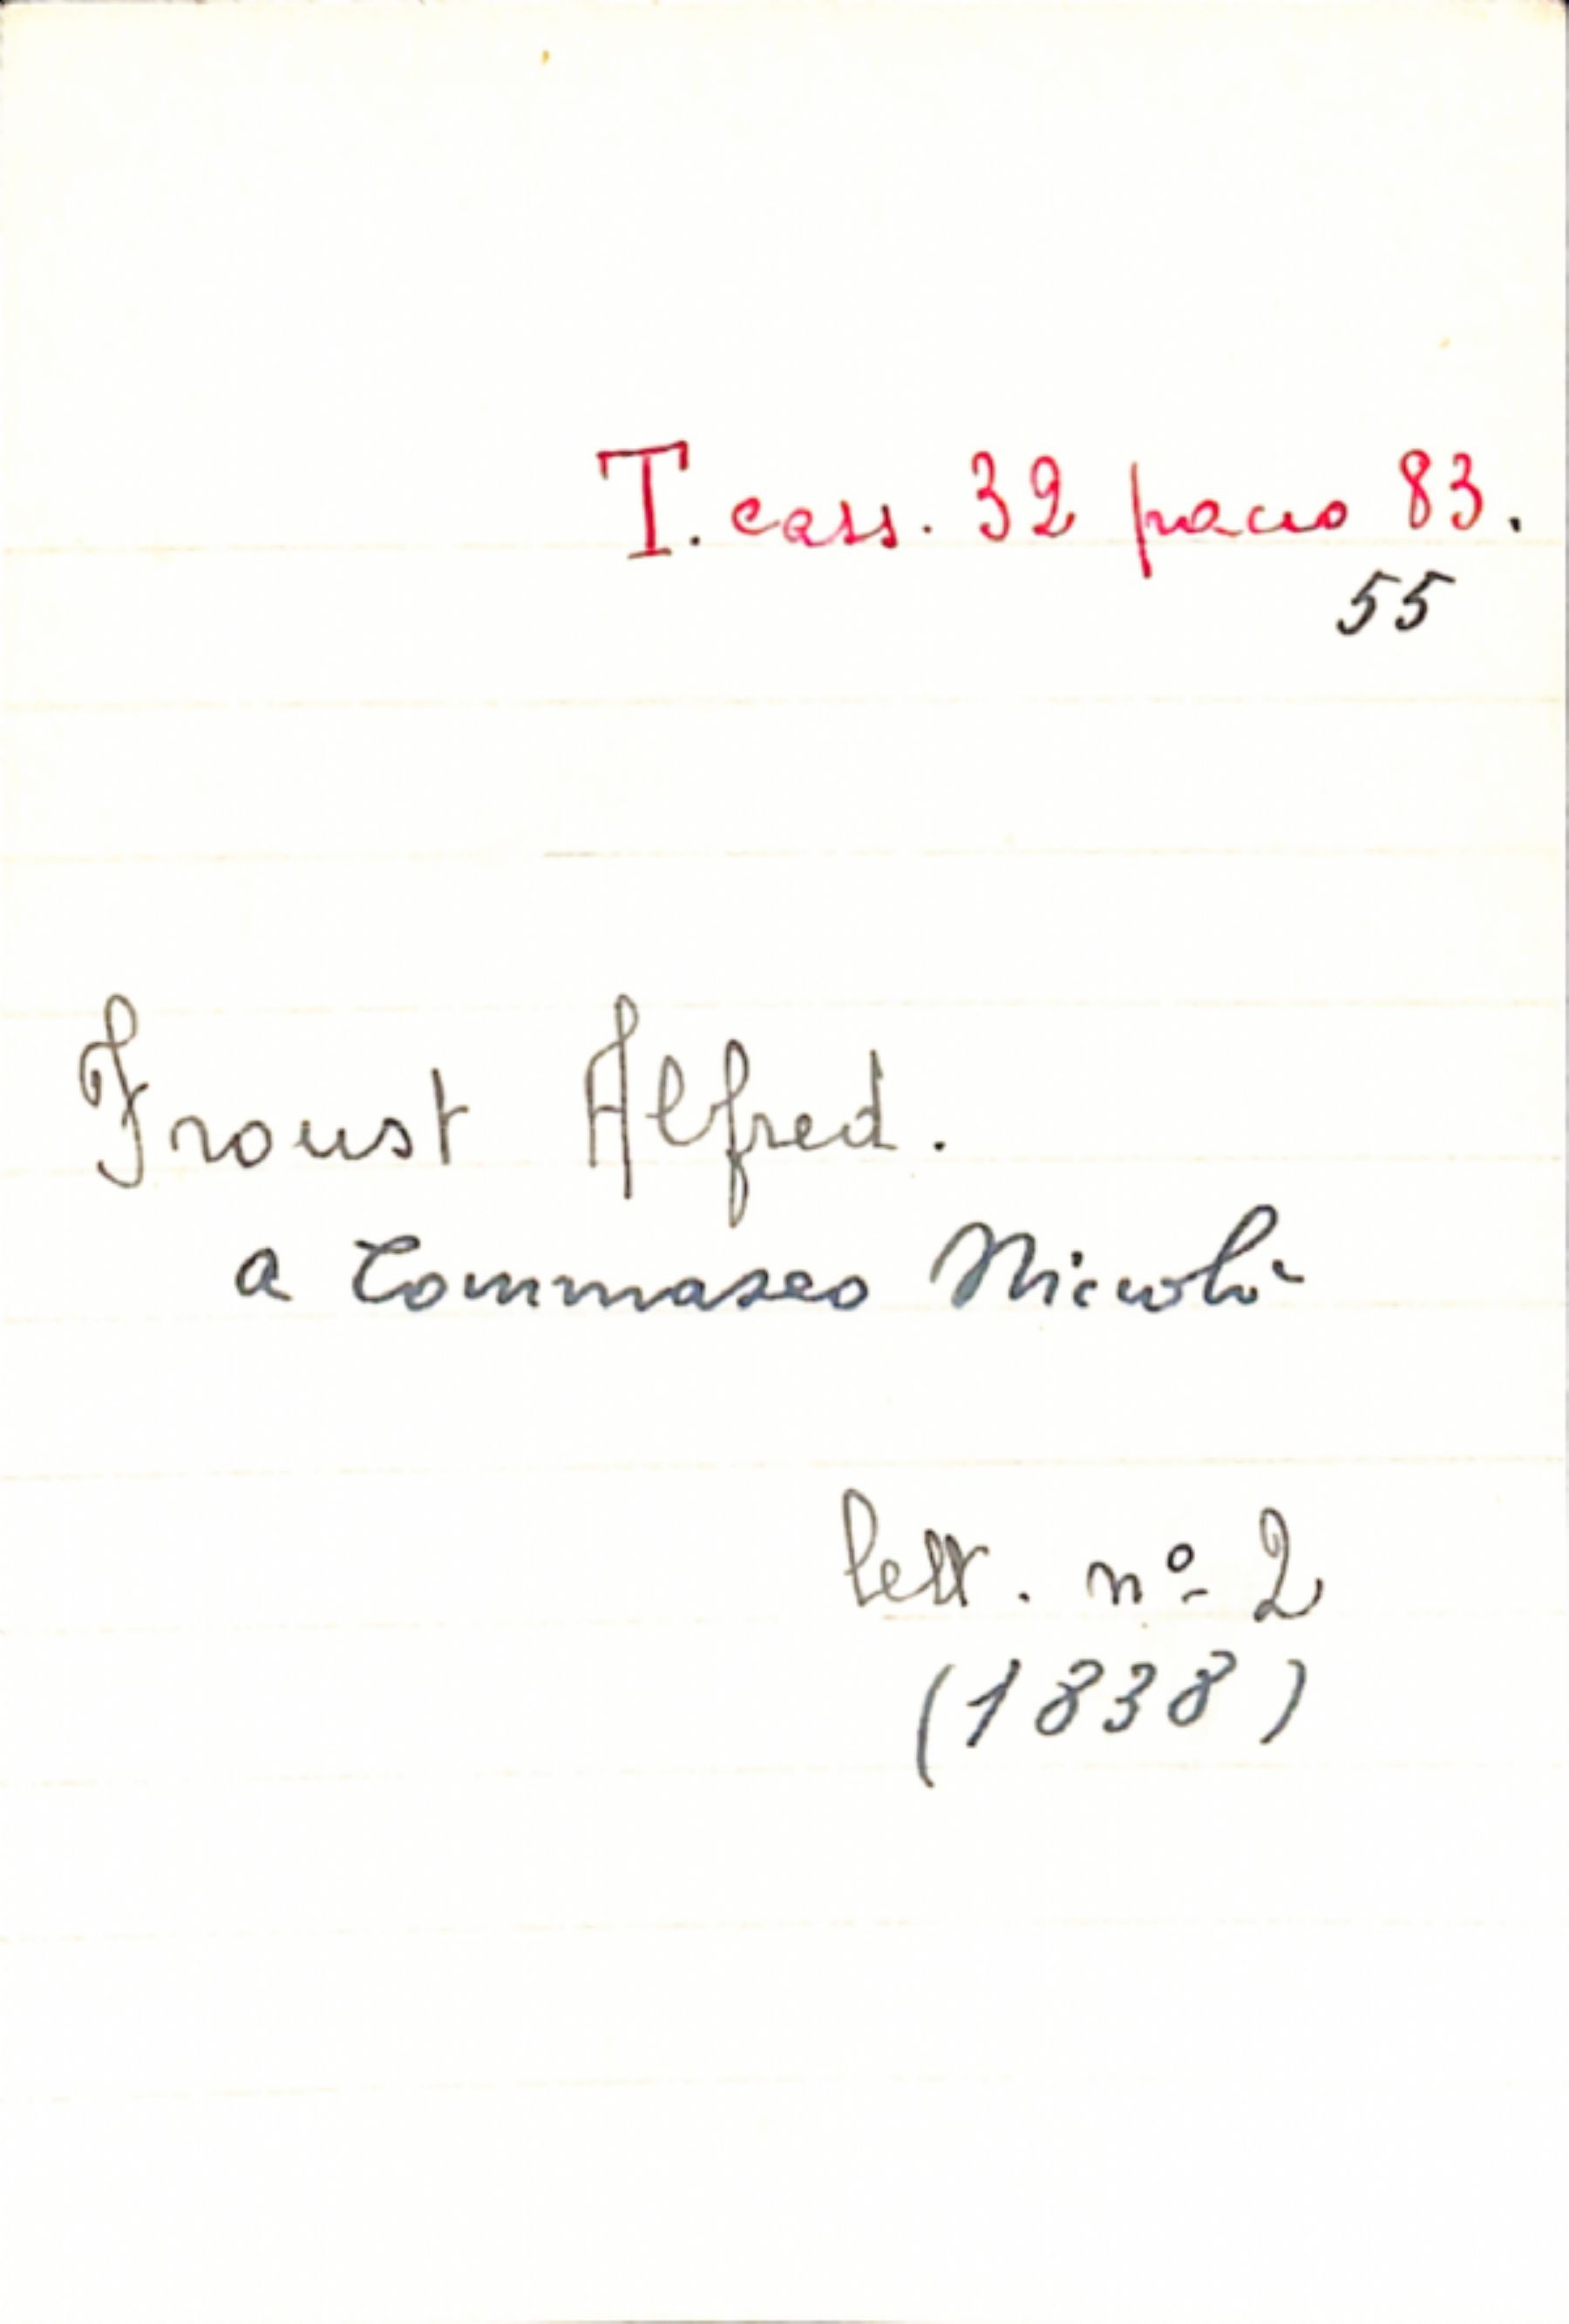 T. cass. 32 pacco 83.
55
Froust Alfred.
a Tommaseo Niccolò
lett. nº 2
(1838)